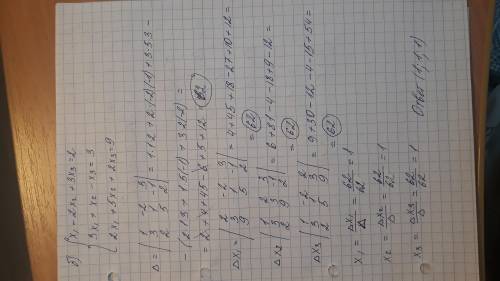 б) { x₁ - 2x₂ + 3x₃ = 2
3x₁ + x₂ x₃ = 3
2x₁ + 5x₂ + 2x₃ = 9
Δ = | 1 -2 3 | 3 1 -1 | 2 5 2 | = 1·1·2 + 2·(-2)(-1) + 3·5·3 -
- (2·1·3 + 1·5(-1) + 3·2(-2) =
= 2 + 4 + 45 - 6 + 5 + 12 = 62
Δx₁ = | 2 -2 3 | 3 1 -1 | 9 5 2 | = 4 + 45 + 18 - 27 + 10 + 12 =
= 62
Δx₂ | 1 2 3 | 3 3 -1 | 2 9 2 | = 6 + 81 - 4 - 18 + 9 - 12 =
= 62
Δx₃ | 1 -2 2 | 3 1 3 | 2 5 9 | = 9 + 30 - 12 - 4 - 15 + 54 =
= 62
x₁ = Δx₁/Δ = 62/62 = 1
x₂ = Δx₂/Δ = 62/62 = 1
x₃ = Δx₃/Δ = 62/62 = 1
Ответ (1; 1; 1)